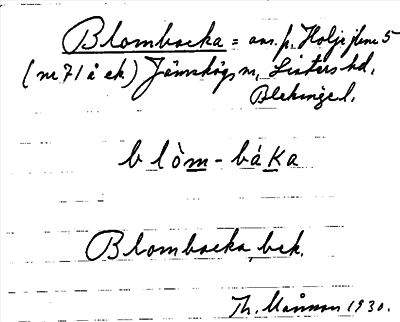 Blombacka = avs. p. Holje jbruk 5
(nr 71 å ek) Jämshögs sn, Listers hd,
Blekinge l.
blòm - báka
Blombacka, bek.
Th. Månsson 1930.